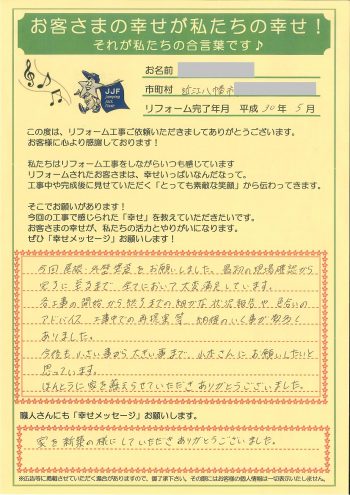 お客さまの幸せが私たちの幸せ！
それが私たちの合言葉です♪
JJF
お名前
市町村 近江八幡市
リフォーム完了年月 平成 30年 5月
この度は、リフォーム工事ご依頼いただきましてありがとうございます。
お客様に心より感謝しております！
私たちはリフォーム工事をしながらいつも感じています
リフォームされたお客さまは、幸せいっぱいなんだなって。
工事中や完成後に見せていただく「とっても素敵な笑顔」から伝わってきます。
そこでお願いがあります！
今回の工事で感じられた「幸せ」を教えていただきたいです。
お客さまの幸せが、私たちの活力とやりがいになります。
ぜひ「幸せメッセージ」お願いします！
今回 屋根・外壁塗装をお願いしました。最初の現場確認から
完了に至るまで、全てにおいて大変満足しています。
各工事の開始から終了までの細かな状況報告や色合いの
アドバイス 工事中での再現実等 納得のいく事が数多く
ありました。
今後も小さい事から大きい事まで、小左さんにお願いしたいと
思っています。
ほんとうに家を蘇えらせていただきありがとうございました。
職人さんにも「幸せメッセージ」お願いします。
家を新築の様にしていただきありがとうございました。
※広告等に掲載させていただく場合がありますので、御了承下さい。その際にはお客様の個人情報は一切表示いたしません。